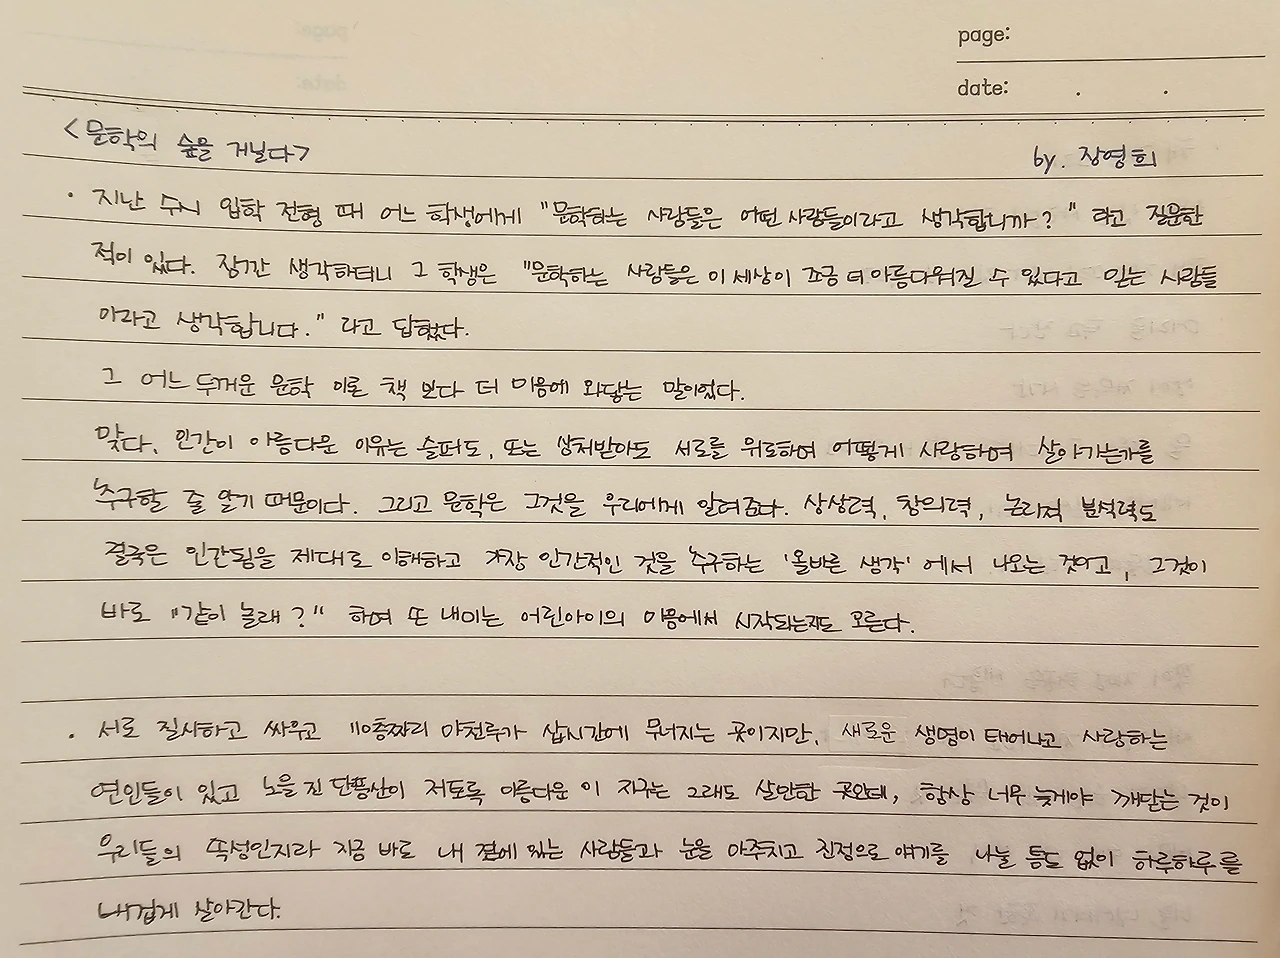 page:
date: . .
<문학의 숲을 거닐다> by. 장영희
· 지난 수시 입학 전형 때 어느 학생에게 "문학하는 사람들은 어떤 사람들이라고 생각합니까?" 라고 질문한
적이 있다. 잠깐 생각하더니 그 학생은 "문학하는 사람들은 이 세상이 조금 더 아름다워질 수 있다고 믿는 사람들
이라고 생각합니다." 라고 답했다.
그 어느 두꺼운 문학 이론 책 보다 더 마음에 와닿는 말이었다.
맞다. 인간이 아름다운 이유는 슬퍼도, 또는 상처받아도 서로를 위로하며 어떻게 사랑하며 살아가는가를
추구할 줄 알기 때문이다. 그리고 문학은 그것을 우리에게 알려준다. 상상력, 창의력, 논리적 분석력도
결국은 인간됨을 제대로 이해하고 가장 인간적인 것을 추구하는 '올바른 생각' 에서 나오는 것이고, 그것이
바로 "같이 놀래?" 하며 또 내미는 어린아이의 마음에서 시작되는지도 모른다.
· 서로 질시하고 싸우고 110층짜리 마천루가 삽시간에 무너지는 곳이지만, 새로운 생명이 태어나고 사랑하는
연인들이 있고 노을 진 단풍산이 저토록 아름다운 이 지구는 그래도 살만한 곳인데, 항상 너무 늦게야 깨닫는 것이
우리들의 속성인지라 지금 바로 내 곁에 있는 사람들과 눈을 마주치고 진정으로 얘기를 나눌 틈도 없이 하루하루를
버겁게 살아간다.